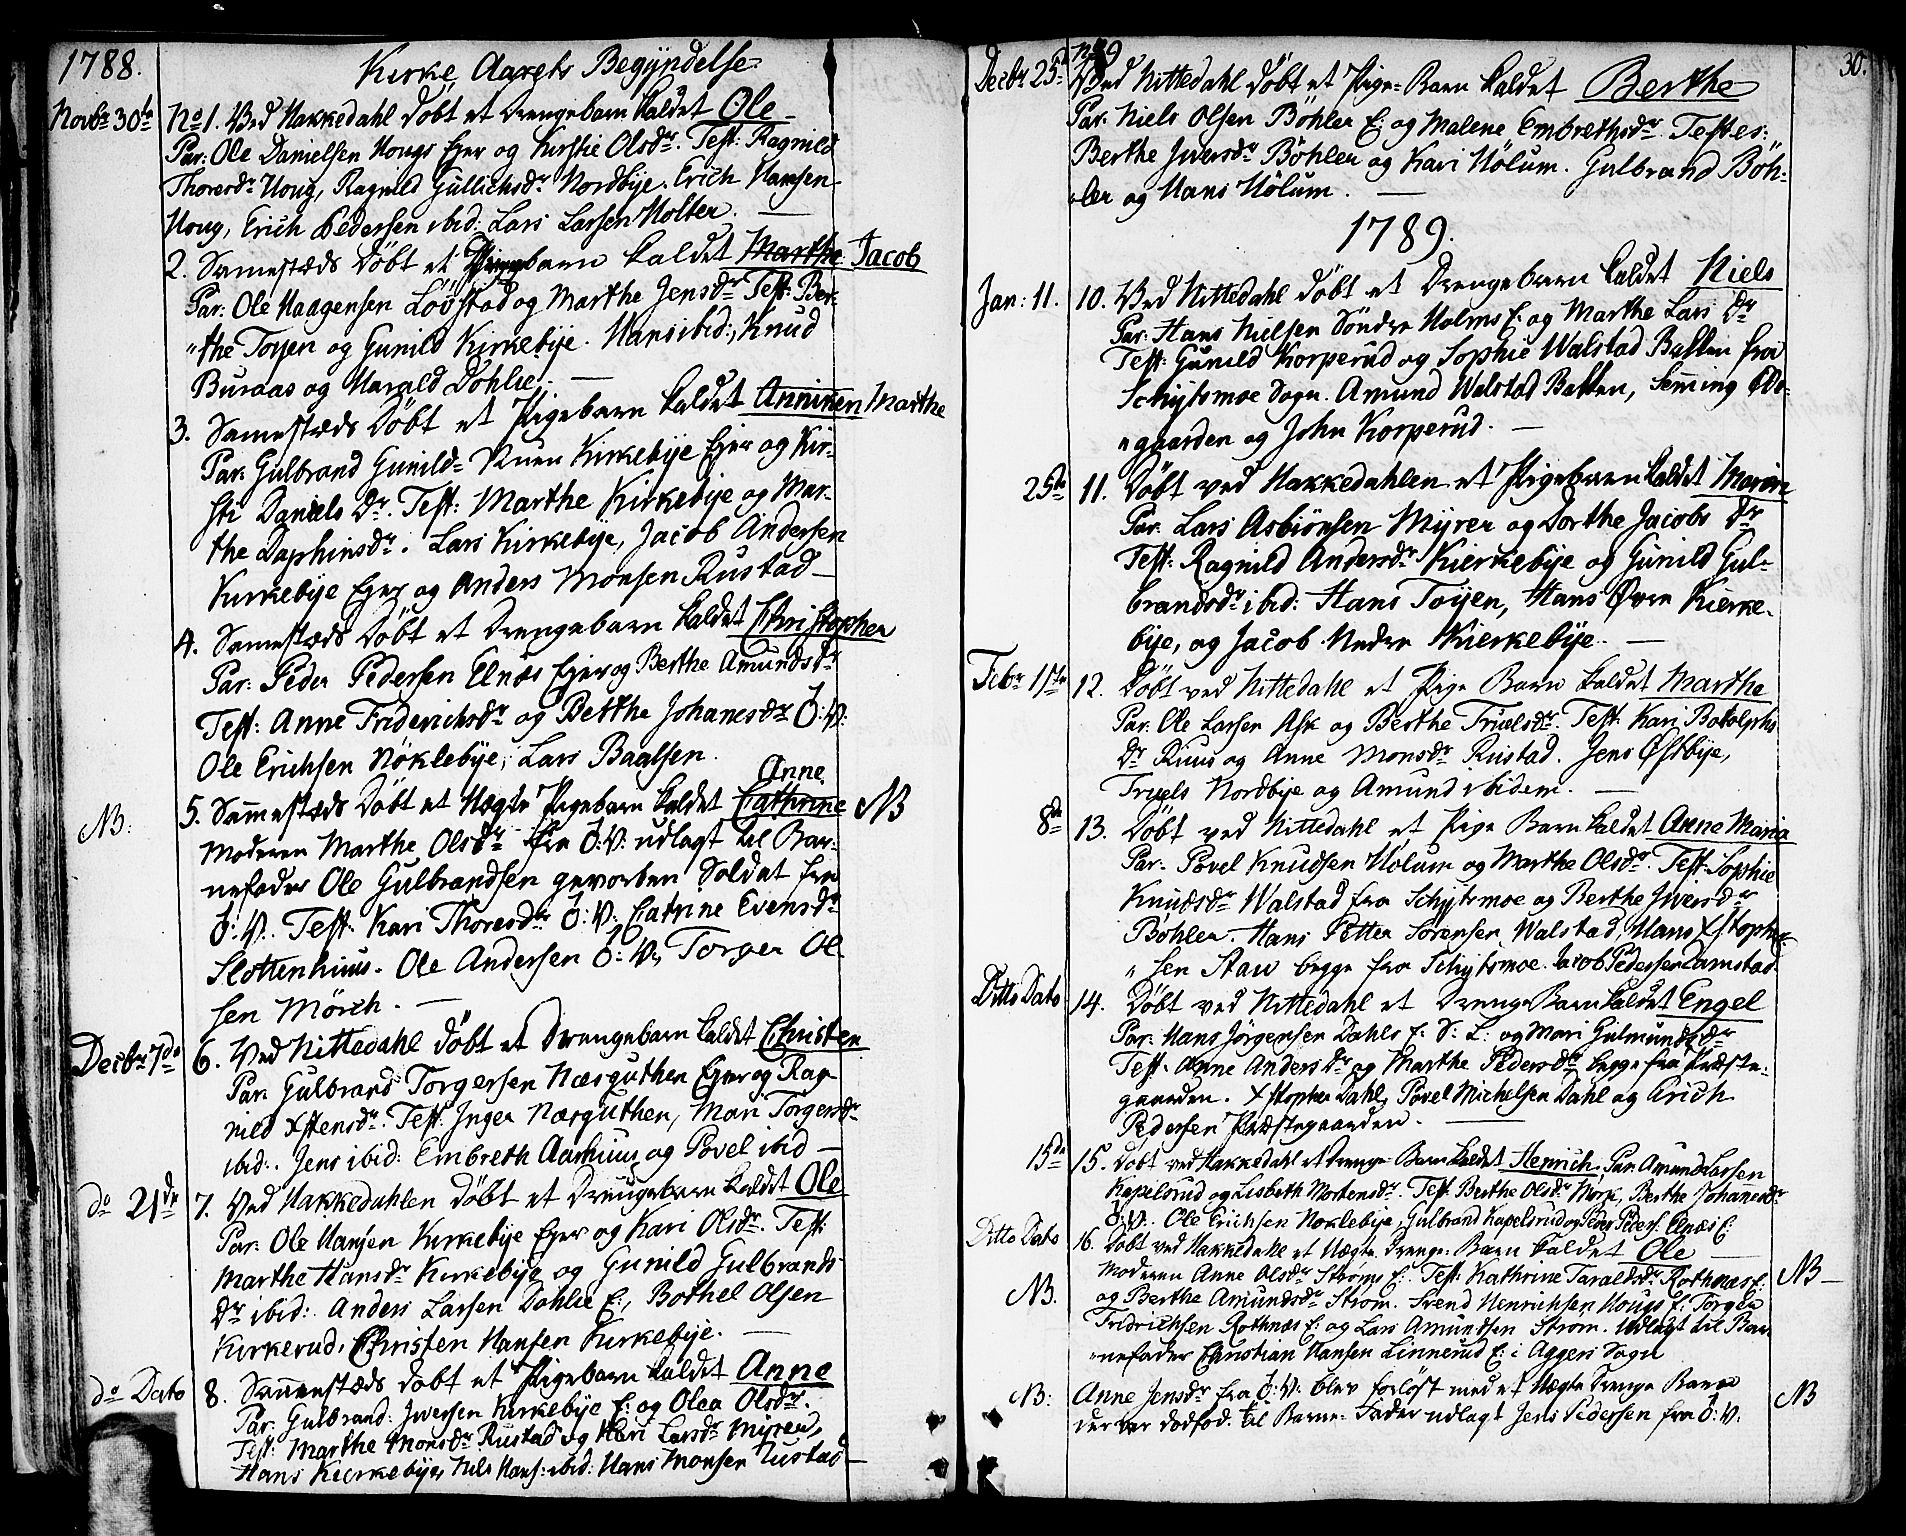 1788. Kirke Aarets Begÿndelse
Novbr 30te No 1. Ved Hakkedahl döbt et Drengebarn kaldet Ole
Par: Ole Danielsen Hougs Ejer og Kirstie Olsdr. Test: Ragnild
Thoresdr Houg, Ragnild Gullichsdr Nordbÿe. Erich Hansen
Houg, Erich Pedersen ibid: Lars Larsen Holter.
2. Samestæds Döbt et barn kaldet Marthe Jacob
Par: Ole Haagensen Lövstad og Marthe Jensdr Test: Ber-
"the Toÿen og Gunild Kirkebÿe. Hans ibid:, Knud
Buraas og Harald Dohlie.
3. Samestæds Döbt et Pigebarn kaldet Anniken Marthe
Par. Gulbrand Gunild- Kirkebÿe Ejer og Kir-
sti Daniels Dr. Test: Marthe Kirkebÿe og Mar-
the Daphinsdr. Lars Kirkebÿe, Jacob Andersen
Kirkebÿe Ejer og Anders Monsen Rustad
4. Samestæds Döbt et Drengebarn kaldet Christopher
Par: Peder Pedersen Elnæs Ejer og Berthe Amundsdr
Test: Anne Friderichsdr og Berthe Johanesdr Ö: V:
Ole Erichsen Nöklebÿe, Lars Baalsen.
Anne
NB: 5. Samestæds Döbt et Uægte Pigebarn kaldet Cathrine NB
Moderen Marthe Olsdr fra Ö: V: udlagt til Bar-
nefader Ole Gulbrandsen gevorben Soldat fra
Ö: V. Test: Kari Thoresdr Ö: V: Catrine Evensdr
Slottenhuus. Ole Andersen Ö: V:, Torger Ol-
sen Mörch.
Decbr 7de 6. Ved Nittedahl Döbt et Drengebarn kaldet Christen
Par. Gulbrand Torgersen Næsguthen Ejer og Rag-
nild Xstensdr. Test. Inger Næsguthen, Mari Torgersdr
ibid:. Jens ibid: Embreth Aarhuus og Povel ibid
do 21de 7. Ved Hakkedahlen Döbt et Drengebarn kaldet Ole
Par: Ole Hansen Kirkebÿe Ejer og Kari Olsdr. Test:
Marthe Hansdr Kirkebÿe og Gunild Gulbrands
Dr ibid: Anders Larsen Dohlie E:, Bothel Olsen
Kirkerud, Christen Hansen Kirkebÿe.
do Dato 8. Samestæds döbt et Pigebarn kaldet Anne
Par. Gulbrand: Iversen Kirkebÿe E: og Olea Olsdr.
Test: Marthe Monsdr Rustad og Kari Larsdr Mÿren,
Hans Kierkebÿe, Nils Hans: ibid: Hans Monsen Rustad
30.
Decbr 25de No 9 Ved Nittedahl Döbt et Pige-Barn kaldet Berthe
Par. Niels Olsen Böhler E: og Malene Embrethsdr Testes:
Berthe Iversdr Böhler og Kari Hölum. Gulbrand Böh-
"ler og Hans Hölum.
1789.
Jan: 11. 10. Ved Nittedahl döbt et Drengebarn kaldet Niels
Par. Hans Nielsen Söndre Holms E: og Marthe Lars Dr
Test: Gunild Korperud og Sophie Walstad Bakken fra
Schÿtsmoe Sogn. Amund Walstad Bakken, Øde-
"gaarden og John Korperud.
25de 11. Döbt ved Hakkedahlen et Pigebarn kaldet Maren
Par. Lars Asbiönsen Mÿrer og Dorthe Jacobs Dr
Test: Ragnild Andersdr Kierkebÿe og Gunild Gul-
brandsdr ibid: Hans Toÿen, Hans Øvre Kierke-
bÿe, og Jacob Nedre Kierkebÿe.
Febr 1ste 12. Döbt ved Nittedahl et Pige Barn kaldet Marthe
Par: Ole Larsen Ask og Berthe Truelsdr. Test: Kari Botolphs
Dr Ruus og Anne Monsdr Rustad. Jens Østbÿe,
Truels Nordbÿe og Amund ibidem.
8de 13. Döbt ved Nittedahl et Pige Barn kaldet Anne Maria
Par. Povel Knudsen Hölum og Marthe Olsdr. Test. Sophie
Knudsdr Walstad fra Schÿtsmoe og Berthe Iversdr
Böhler. Hans Petter Sörensen Walstad, Hans Xstopher-
"sen Stav begge fra Schÿtsmoe. Jacob Pedersen Lamstad
Ditto Dato 14. Döbt ved Nittedahl et Drenge Barn kaldet Engel
Par. Hans Jörgensen Dahls E: S: L: og Mari Gulmundsdr
Test. Anne Andersdr og Marthe Pedersdr begge fra Præste-
gaarden. Xstopher Dahl, Povel Michelsen Dahl og Erich
Pedersen Præstegaarden.
15de 15. Döbt ved Hakkedahl et Drenge-Barn kaldet Henrich. Par. Amund Larsen
Kapelsrud og Lisbeth Mortensdr. Test. Berthe Olsdr Mörk, Berthe Johanesdr
Ö: V. Ole Erichsen Nöklebÿe, Gulbrand Kapelsrud og Peder Peders: Elnæs E:
Ditto Dato 16. Döbt ved Hakkedahl et Uægte Drenge-Barn kaldet Ole
NB. Moderen Anne Olsdr Ströms E: Test: Kathrine Taraldsdr Rothnæs E: NB
og Berthe Amundsdr Ström. Svend Henrichsen Hougs E: Torger
Fridrichsen Rothnæs E: og Lars Amundsen Ström. Udlagt til Bar-
"nefader Christian Hansen Linnerud E: i Aggers Sogn
NB: Anne Jensdr fra Ö: V: blev forløst med et Uægte Drenge Barn NB
der var dödföd. til Barne-Fader udlagt Jens Pedersen fra Ö: V: